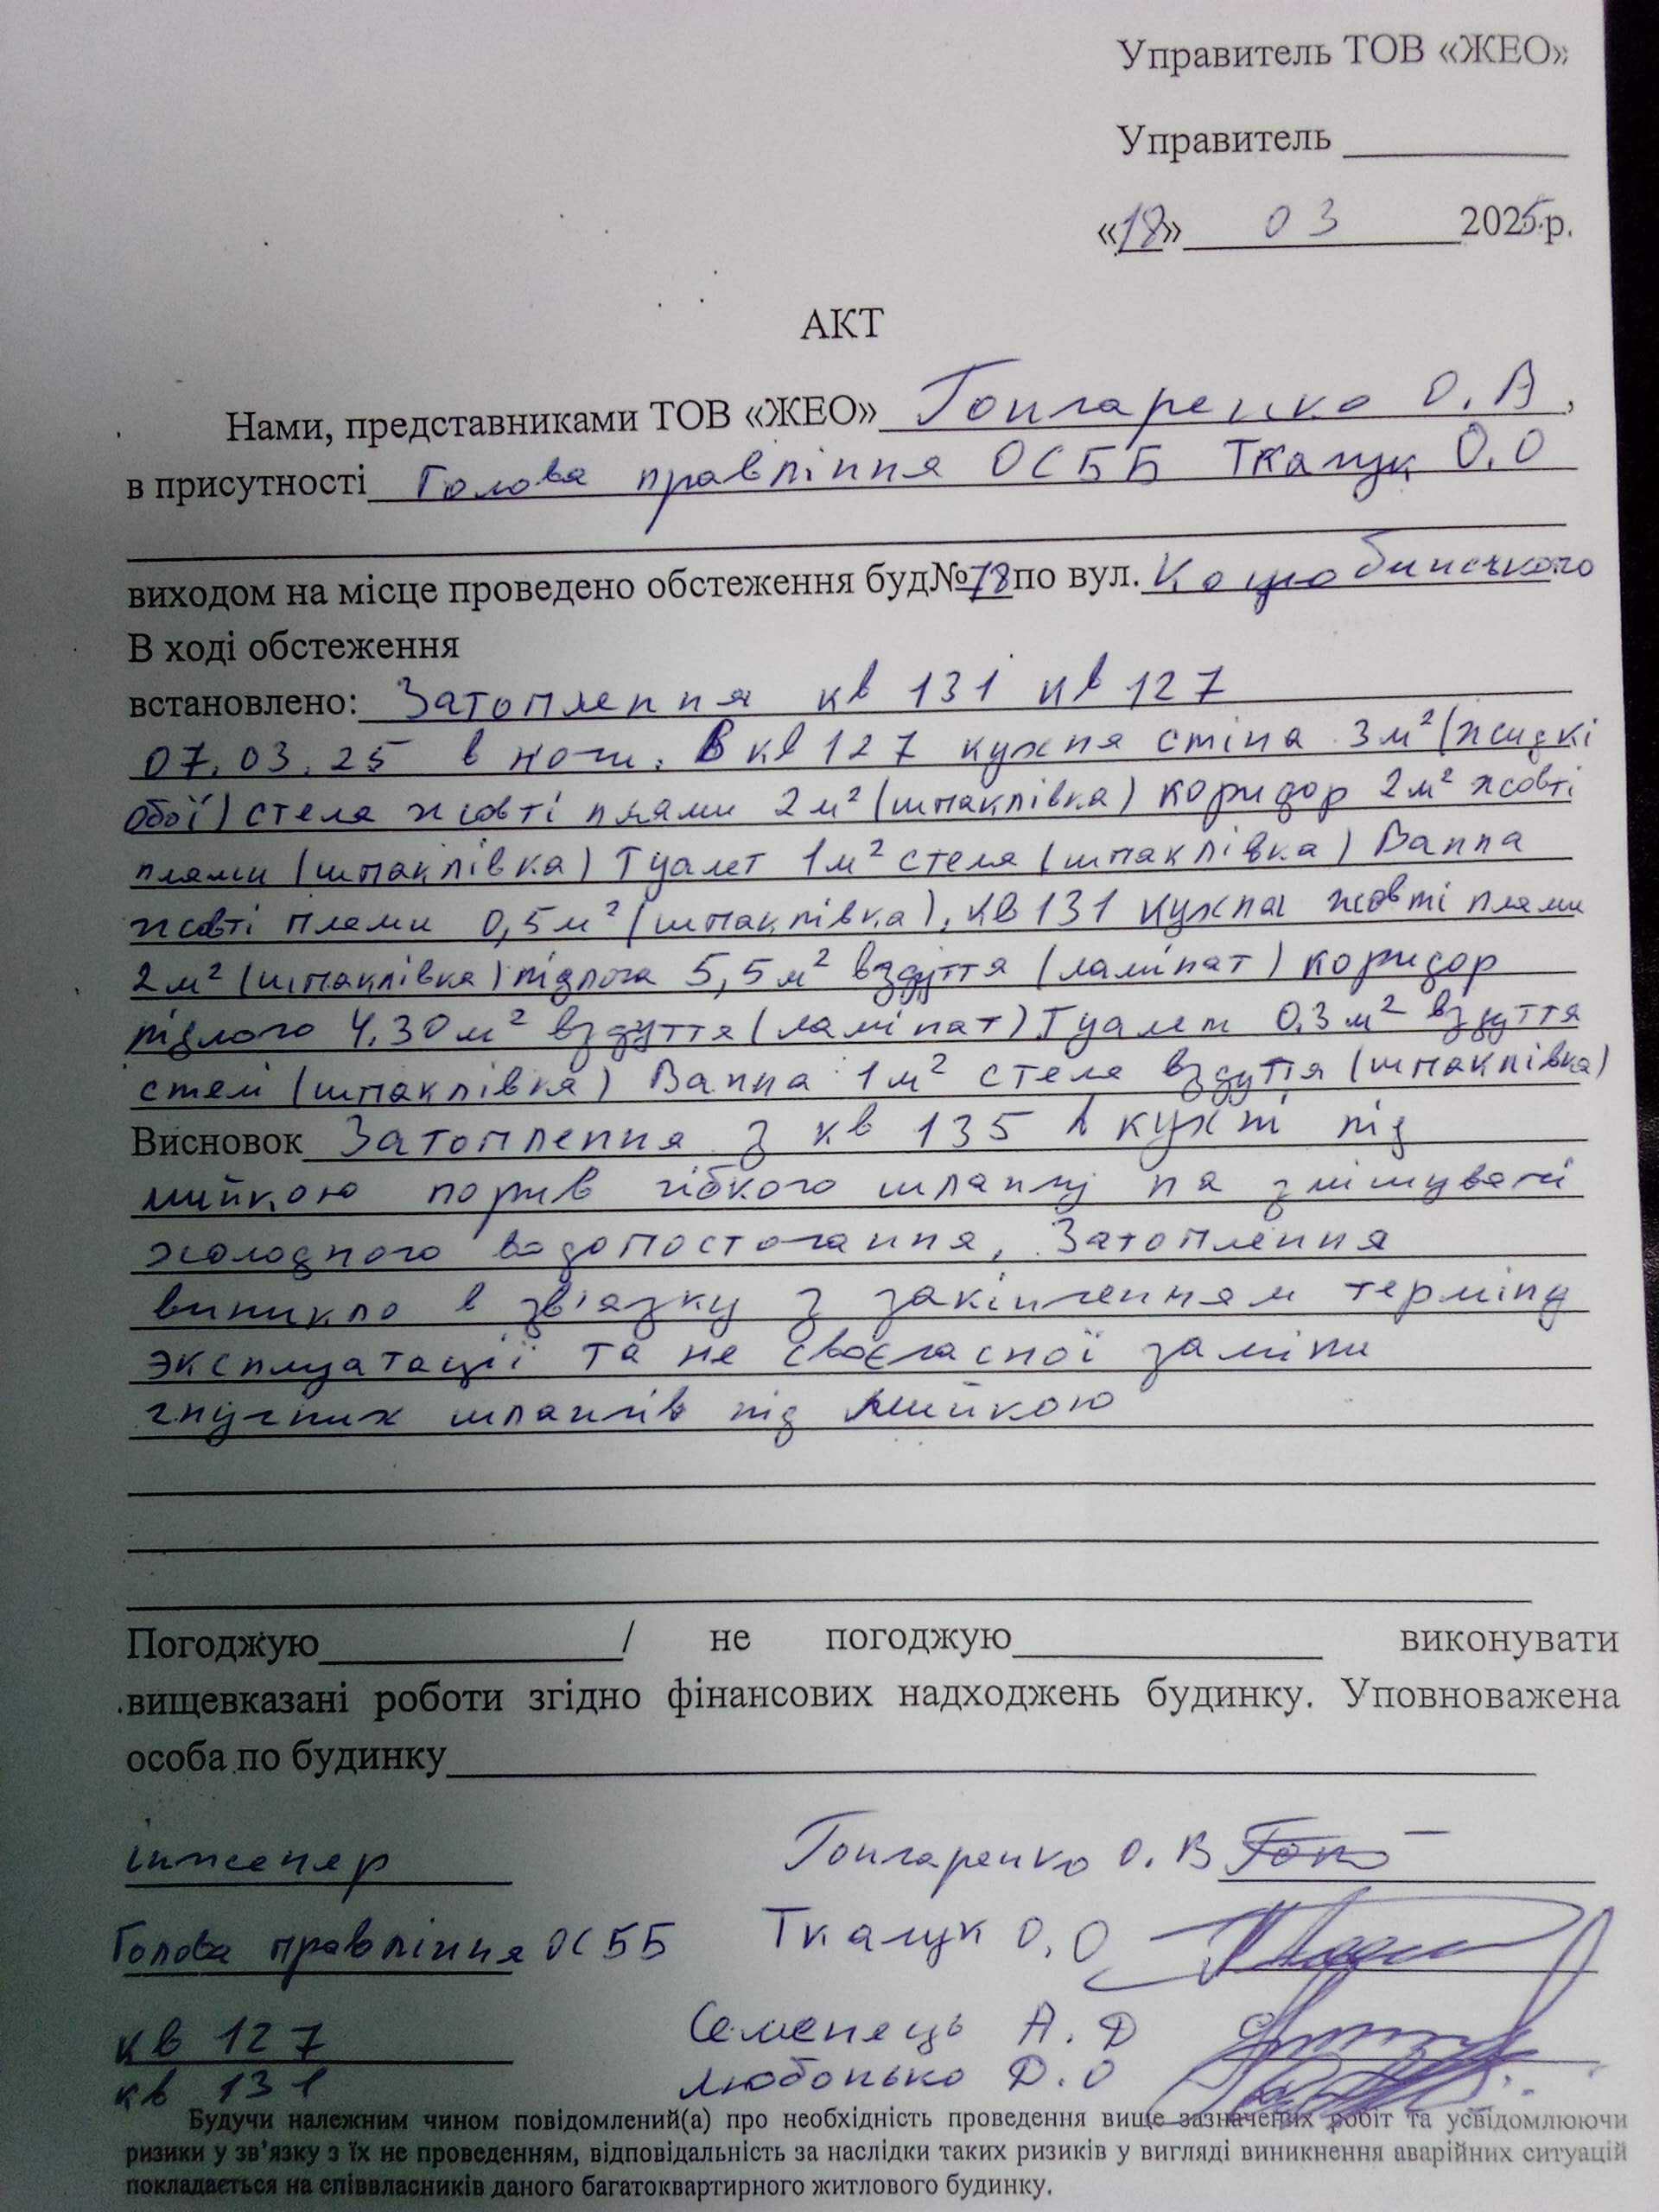 Управитель ТОВ «ЖЕО»
Управитель
«18» 03 2025р.
АКТ
Нами, представниками ТОВ «ЖЕО» Гончаренко О.В,
в присутності Голова правління ОСББ Ткачук О.О
виходом на місце проведено обстеження буд№78 по вул. Коцюбинського
В ході обстеження
встановлено: Затоплення кв 131 кв 127
07.03.25 в ночи. В кв 127 кухня стіна 3м² (жидкі
обої) стеля жовті плями 2м² (шпаклівка) коридор 2м² жовті
плями (шпаклівка) Туалет 1м² стеля (шпаклівка) Ванна
жовті плями 0,5м² (шпаклівка). кв 131 кухня жовті плями
2м² (шпаклівка) підлога 5,5м² вздуття (ламінат) коридор
підлого 4.30м² вздуття (ламінат) Туалет 0.3м² вздуття
стелі (шпаклівка) Ванна 1м² стеля вздуття (шпаклівка)
Висновок Затоплення з кв 135 в кухні під
мийкою порив гібкого шлангу на змішувачі
холодного водопостачання, Затоплення
виникло в зв'язку з закінченням терміну
эксплуатації та не своєчасної заміни
гнучких шлангів під мийкою
Погоджую / не погоджую виконувати
вищевказані роботи згідно фінансових надходжень будинку. Уповноважена
особа по будинку
інженер Гончаренко О.В
Голова правління ОСББ Ткачук О.О
кв 127 Семенець А.Д
кв 131 Любонько Д.О
Будучи належним чином повідомлений(а) про необхідність проведення вище зазначених робіт та усвідомлюючи
ризики у зв'язку з їх не проведенням, відповідальність за наслідки таких ризиків у вигляді виникнення аварійних ситуацій
покладається на співвласників даного багатоквартирного житлового будинку.